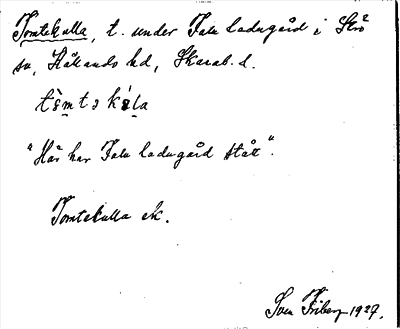 Tomtekulla, t. under Fale ladugård i Strö
sn, Kållands hd, Skarab. l.
tʹomtəkʹɵla
"Här har Fale ladugård stått".
Tomtekulla ek.
Sven Friberg 1927.